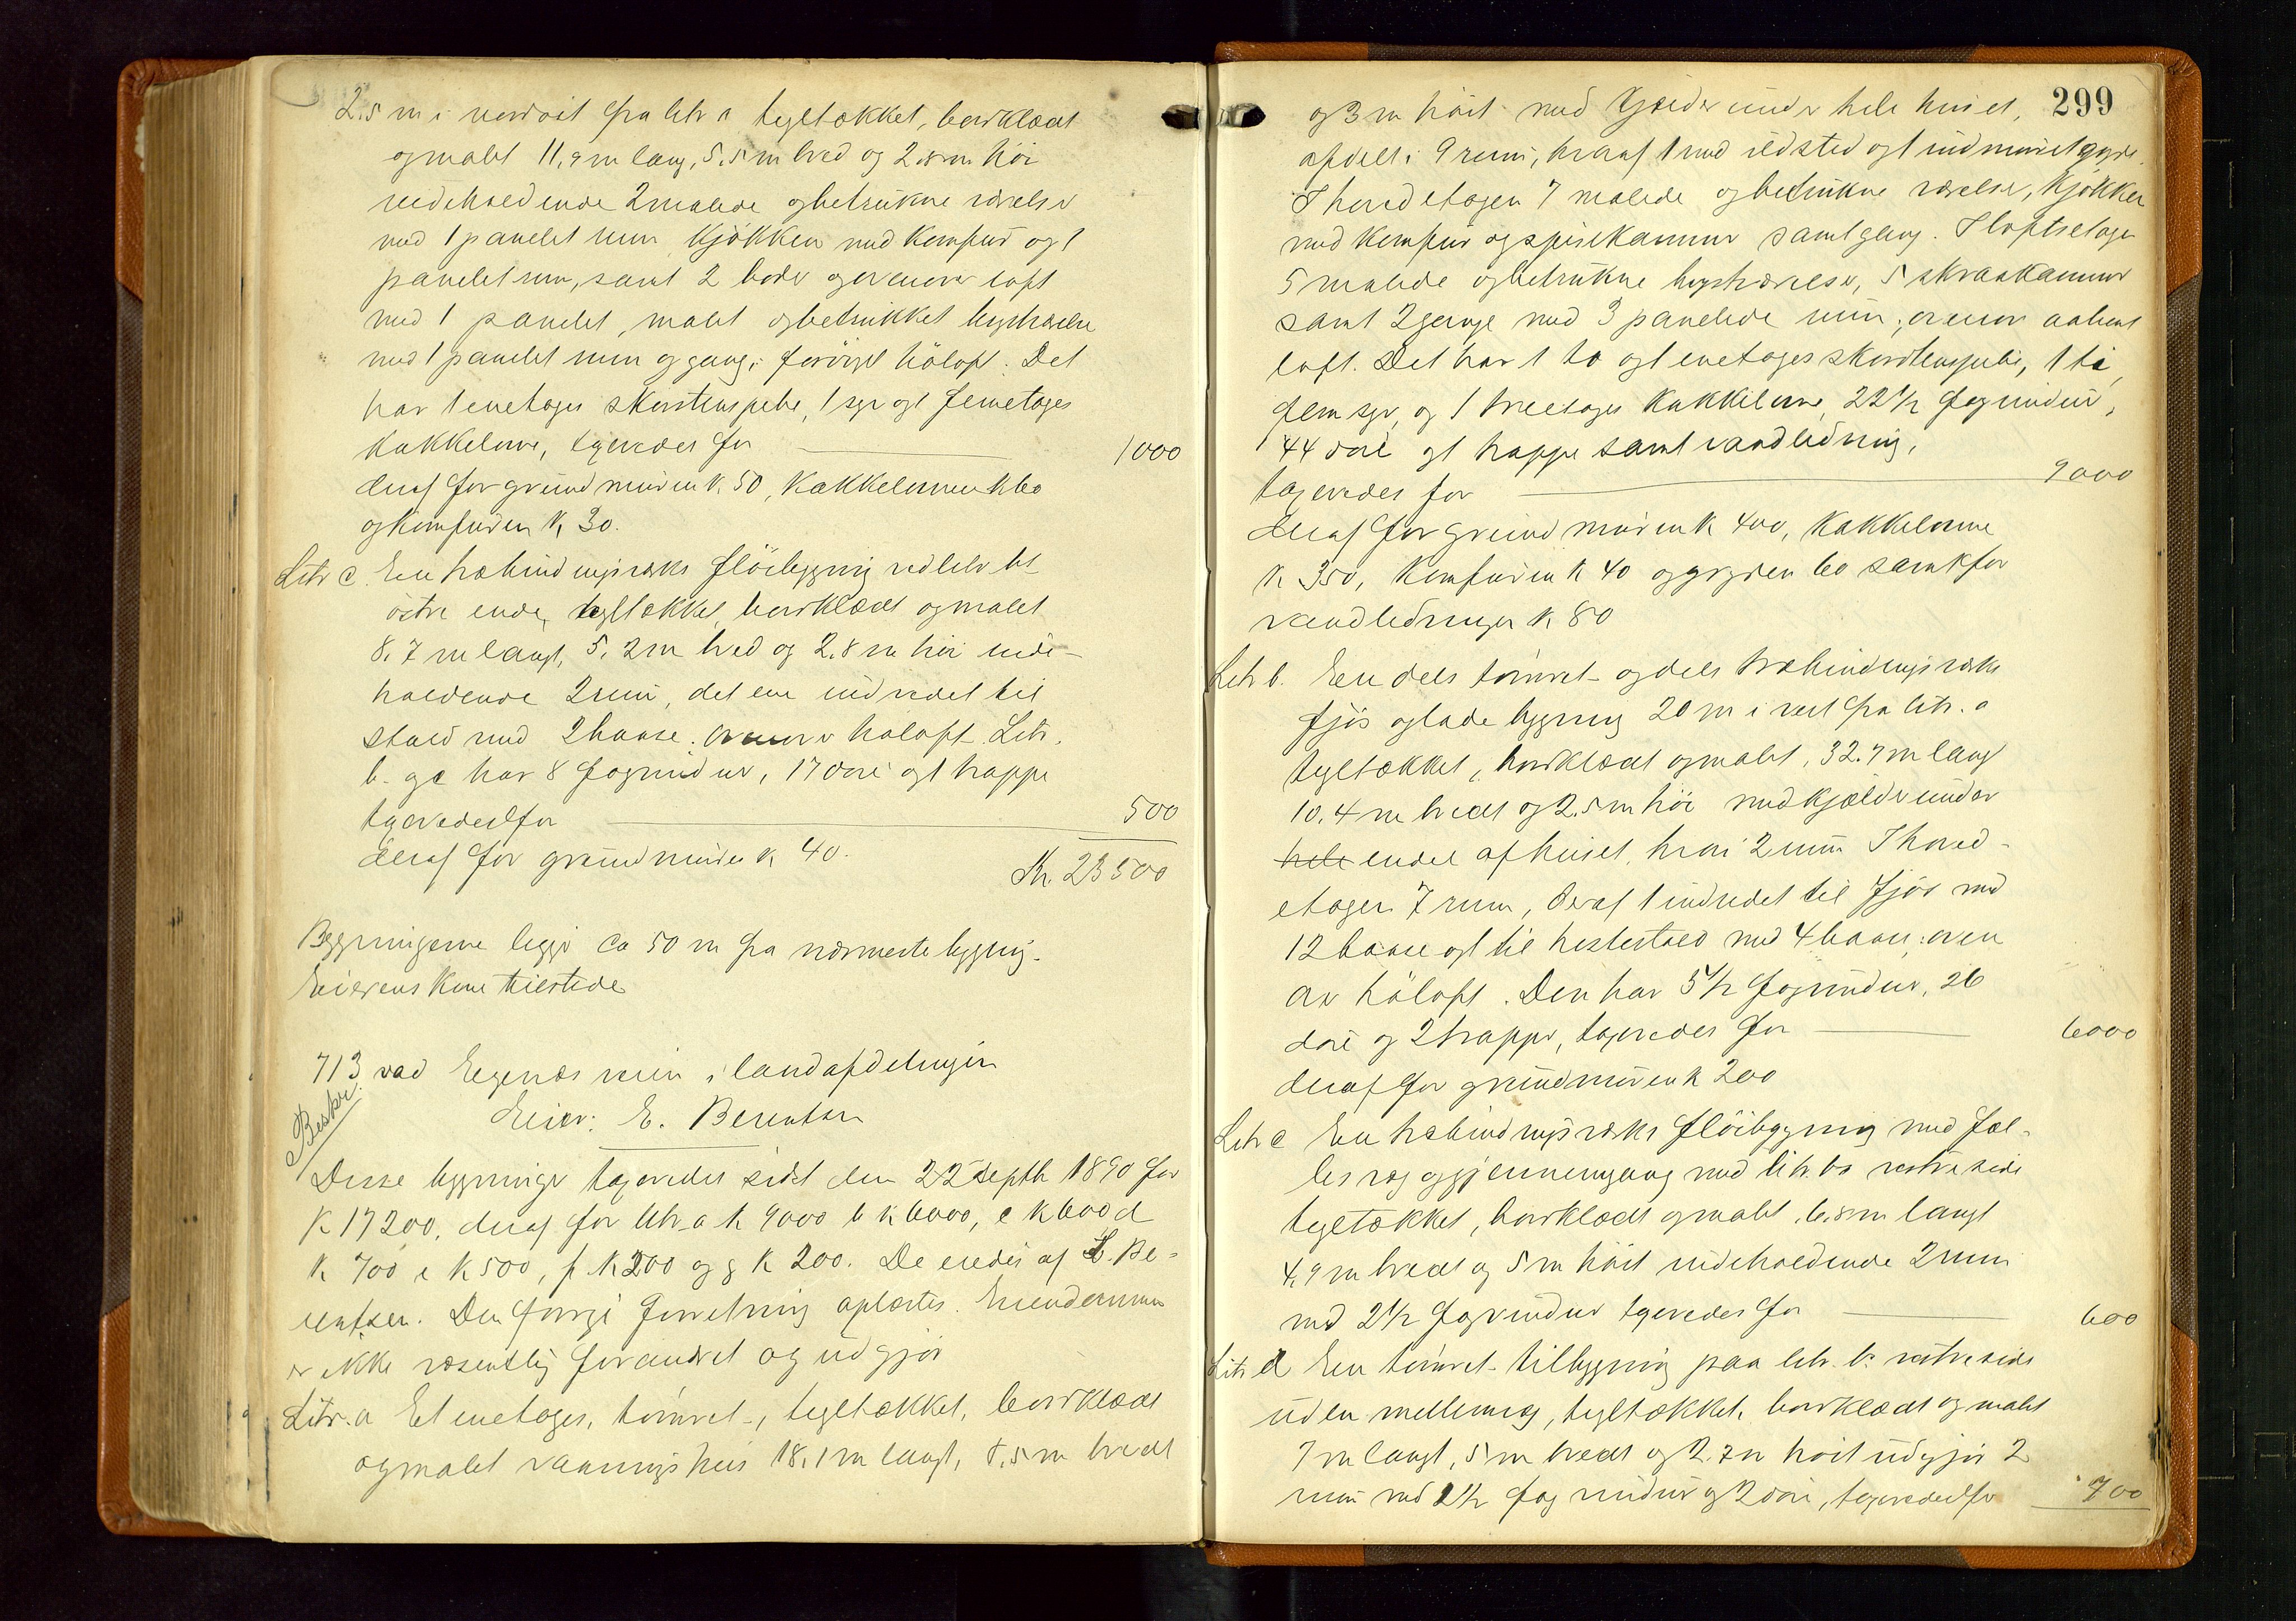 2.5 m i nordost fra litr a tegltækket, bordklædt
og malet 11,9 m lang, 5,5 m bred og 2,8 m höi
indeholdende 2 malede og betrukne værelser
med 1 panelet rum, kjøkken med komfur og 1
panelet rum, samt 2 boder og ovenover loft
med 1 panelet, malet og betrukket kvistværelse
med 1 panelet rum og gang, i forövrigt höloft. Det
har 1 enetages skorstenspibe, 1 og 1 femetages
kakkelovne, taxeredes for 1000
deraf for grundmuren k. 50, kakkelovnene k 60
og komfuren k. 30.
Litr c. En træbindingsværks flöibygning ved litr bs
östre ende, tegltækket, bordklædt og malet
8,7 m langt, 5,2 m bred og 2,8 m höi inde-
holdende 2 rum, det ene indredet til
stald med 2 baase; ovenover höloft. Litr.
b. og c har 8 fag vinduer, 17 döre og 1 trappe
taxeredes for 500
deraf for grundmuren k. 40.
Kr. 23500
Bygningerne ligge ca 50 m fra nærmeste bygning.
Eierens kone tilstede
713 ved Eegenæsveien i landafdelingen
Beskr.
Eier: E. Berentsen
Disse bygninger taxeredes sidst den 22 septbr 1890 for
K 17200, deraf for litr. a k 9000 b k 6000, c k 600 d
k 700 e k 500, f. k 200 og g k 200. De eiedes af E. Be-
rentsen. Den forrige forretning oplæstes. Eiendommen
er ikke væsentlig forandret og udgjör
Litr. a Et enetages, tömret, tegltækket, bordklædt
og malet vaaningshus 18,1 m langt, 8,5 m bredt
299
og 3 m höit med kjælder under hele huset,
afdelt i 9 rum, hvoraf 1 med ildsted og 1 indmuret gryde.
I hovedetagen 7 malede og betrukne værelser, kjøkken
med komfur og spisekammer samt gang. I loftsetagen
5 malede og betrukne kvistværelser, 5 skraakammer
samt 2 gange med 3 panelede rum; ovenover aabent
loft. Det har 1 to og 1 enetages skorstenspibe, 1 to,
fem og 1 treetages kakkelovne, 22 1/2 fag vinduer,
44 döre og 1 trappe samt vandledning,
taxeredes for 9000
deraf for grundmuren k 400, kakkelovnene
k 350, komfuren k 40 og gryden 60 samt for
vandledningen k 80
Litr b. En dels tömret- og dels træbindingsværks
fjös og ladebygning 20 m i vest fra litr. a
tegltækket, bordklædt og malet, 32.7 m lang
10,4 m bredt og 2,5 m höi med kjælder under
hele endel af huset, hvori 2 rum. I hoved-
etagen 7 rum, deraf 1 indredet til fjös med
12 baase og 1 til hestestald med 4 baase; oven
over höloft. Den har 5 1/2 fag vinduer, 26
döre og 2 trapper, taxeredes for 6000
deraf for grundmuren k 200
Litr c En træbindingsværks flöibygning med fæl-
les væg og gjennemgang med litr. bs vestre side
tegltækket, bordklædt og malet, 6,8 m langt
4,9 m bredt og 5 m höit indeholdende 2 rum
med 2 1/2 fag vinduer taxeredes for 600
Litr d En tömret- tilbygning paa litr. bs vestre side
uden mellemvæg, tegltækket, bordklædt og malet
7 m langt, 5 m bredt og 2,7 m höit udgjör 2
rum med 2 1/2 fag vinduer og 2 döre, taxeredes for 700